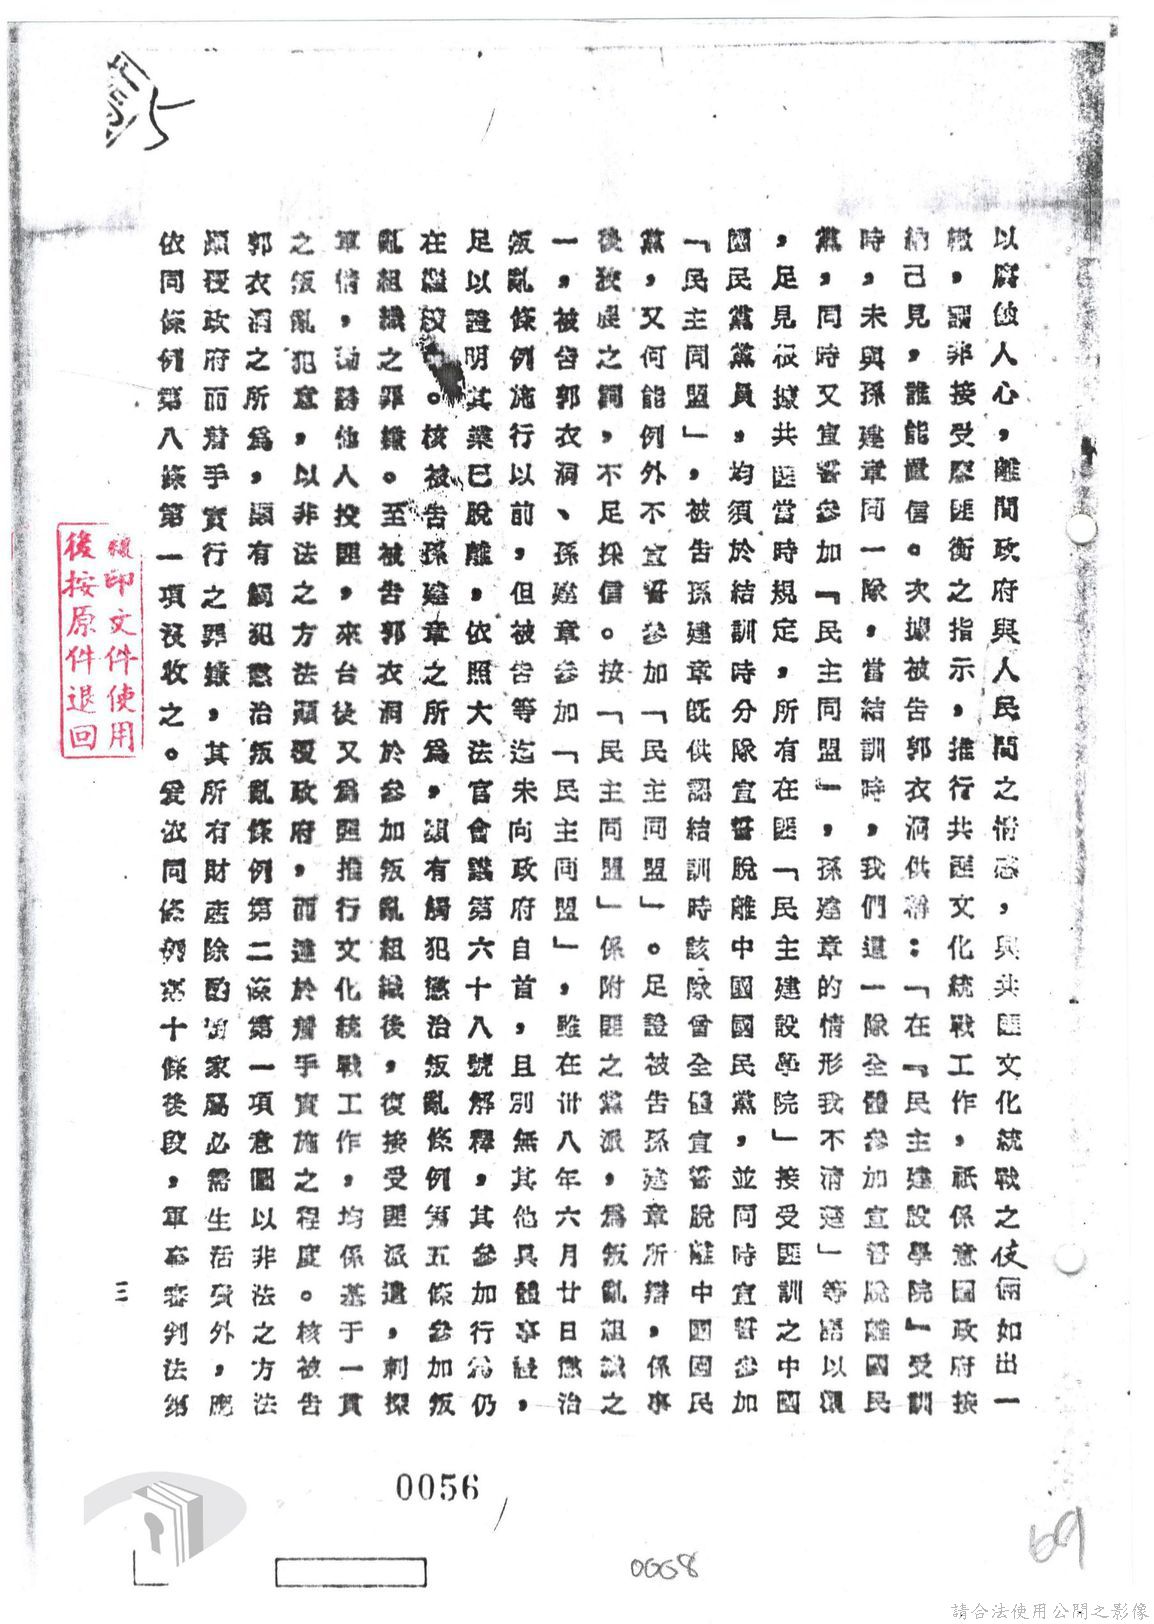 以腐蝕人心，離間政府與人民間之情感，與共匪文化統戰之伎倆如出一
轍，謂非接受廖匪衡之指示，推行共匪文化統戰工作，祇係意圖政府接
納己見，誰能置信。次據被告郭衣洞供稱：「在『民主建設學院』受訓
時，未與孫建章同一隊，當結訓時，我們這一隊全體參加宣誓脫離國民
黨，同時又宣誓參加『民主同盟』，孫建章的情形我不清楚」等語以觀
，足見根據共匪當時規定，所有在匪「民主建設學院」接受匪訓之中國
國民黨黨員，均須於結訓時分隊宣誓脫離中國國民黨，並同時宣誓參加
「民主同盟」，被告孫建章既供認結訓時該隊曾全體宣誓脫離中國國民
黨，又何能例外不宣誓參加「民主同盟」。足證被告孫建章所辯，係事
後狡展之詞，不足採信。按「民主同盟」係附匪之黨派，為叛亂組織之
一，被告郭衣洞、孫建章參加「民主同盟」，雖在卅八年六月廿日懲治
叛亂條例施行以前，但被告等迄未向政府自首，且別無其他具體事證，
足以證明其業已脫離，依照大法官會議第六十八號解釋，其參加行為仍
在繼續中。核被告孫建章之所為，顯有觸犯懲治叛亂條例第五條參加叛
亂組織之罪嫌。至被告郭衣洞於參加叛亂組織後，復接受匪派遣，刺探
軍情，誘他人投匪，來台後又為匪推行文化統戰工作，均係基于一貫
之叛亂犯意，以非法之方法顛覆政府，而達於着手實施之程度。核被告
郭衣洞之所為，顯有觸犯懲治叛亂條例第二條第一項意圖以非法之方法
顛覆政府而着手實行之罪嫌，其所有財產除酌留家屬必需生活費外，應
依同條例第八條第一項沒收之。爰依同條例第十條後段，軍事審判法第
三
印文件使用
後按原件退回
0056
0068
69
請合法使用公開之影像